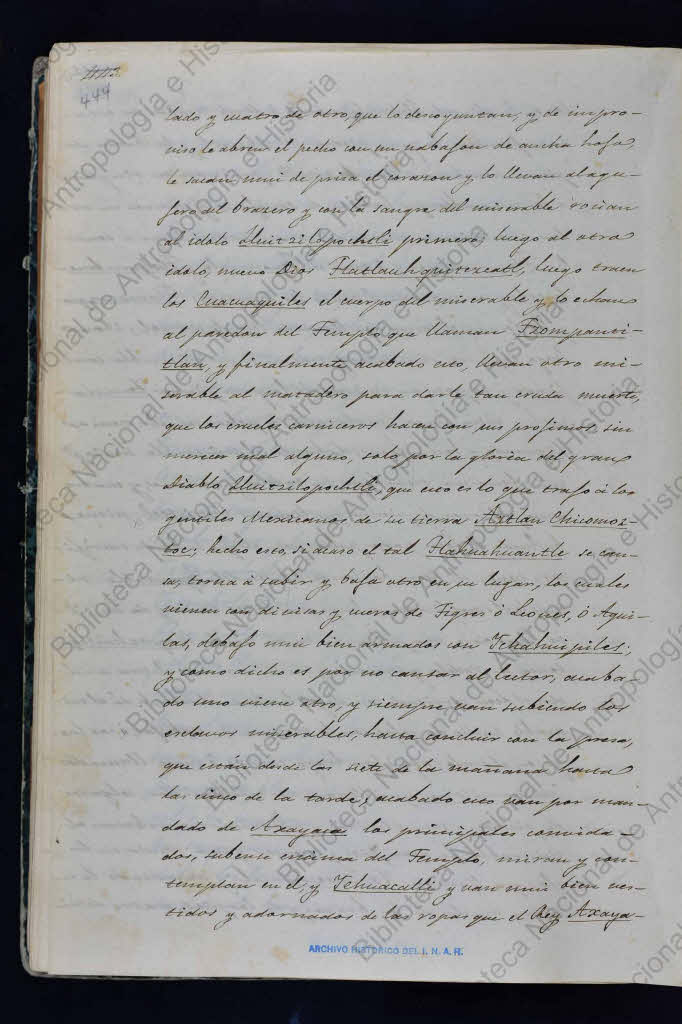 443
444
lado y cuatro de otro, que lo descoyuntan, y de impro-
viso le abren el pecho con un nabajon de ancha hoja,
le sacan mui de prisa el corazon y lo llevan al agu-
jero del brazero y con la sangre del miserable rocian
al idolo Huitzilopochtli primero; luego al otro
idolo, nuevo Dios Tlatlauhquitezcatl, luego traen
los Cuacuaquiles el cuerpo del miserable y lo echan
al paredon del Templo que llaman Tzompanti-
tlan, y finalmente acabado esto, llevan otro mi-
serable al matadero para darle tan cruda muerte,
que los crueles carniceros hacen con sus projimos sin
merecer mal alguno, solo por la gloria del gran
Diablo Huitzilopochtli, que esto es lo que trajo á los
gentiles Mexicanos de su tierra Aztlan Chicomoz-
toc; hecho esto, si acaso el tal Tlahuahuantle se can-
sa, torna á subir y baja otro en su lugar, los cuales
vienen con divisas y cueros de Tigres ó Leones, ó Agui-
las, debajo mui bien armados con Ychahuipiles;
y como dicho es por no cansar al lector, acaba-
do uno viene otro, y siempre van subiendo los
esclavos miserables, hasta concluir con la presa,
que están desde las siete de la mañana hasta
las cinco de la tarde; acabado esto van por man-
dado de Axayaca los principales convida-
dos, subense encima del Templo, miran y con-
templan en el, y Tehuacalli y van mui bien ves-
tidos y adornados de las ropas que el Rey Axaya-
ARCHIVO HISTORICO DEL I. N. A. H.
Biblioteca Nacional de Antropología e Historia